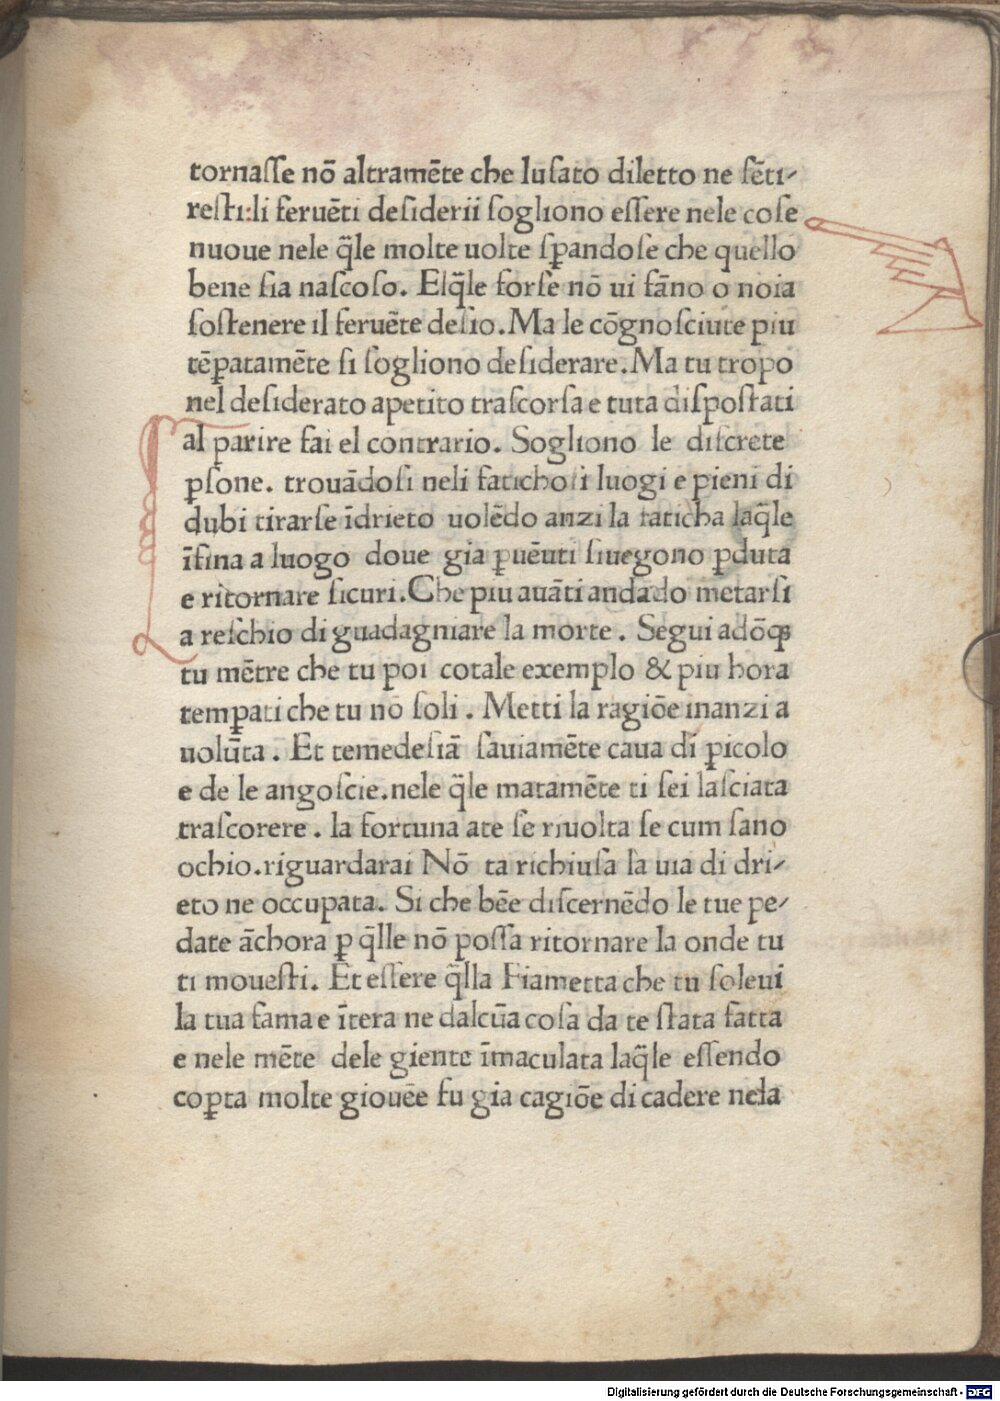 tornaſſe nō altramēte che luſato diletto ne ſēti-
reſti:li feruēti deſiderii ſogliono eſſere nele coſe
nuoue nele q̄le molte uolte ſꝑandoſe che quello
bene ſia naſcoſo. Elq̄le forſe nō ui fāno o noia
ſoſtenere il feruēte deſio. Ma le cōgnoſciute piu
tēꝑatamēte ſi ſogliono deſiderare. Ma tu tropo
nel deſiderato apetito traſcorſa e tuta diſpoſtati
al ꝑarire fai el contrario. Sogliono le diſcrete
ꝑſone. trouādoſi neli fatichoſi luogi e pieni di
dubi tirarſe īdrieto uolēdo anzi la faticha laq̄le
īfina a luogo doue gia ꝑuēuti ſiuegono ꝑduta
e ritornare ſicuri. Che piu auāti andado metarſi
a reſchio di guadagniare la morte. Segui adōqꝫ
tu mētre che tu poi cotale exemplo & piu hora
temꝑati che tu nō ſoli. Metti la ragiōe inanzi a
uolūta. Et temedeſiā ſauiamēte caua di ꝑicolo
e de le angoſcie. nele q̄le matamēte ti ſei laſciata
traſcorere. la fortuna ate ſe riuolta ſe cum ſano
ochio. riguardarai Nō ta richiuſa la uia di dri-
eto ne occupata. Si che bēe diſcernēdo le tue pe-
date āchora ꝑ q̄lle nō poſſa ritornare la onde tu
ti moueſti. Et eſſere q̄lla Fiametta che tu ſoleui
la tua fama e ītera ne dalcūa coſa da te ſtata fatta
e nele mēte dele giente īmaculata laq̄le eſſendo
coꝑta molte giouēe fu gia cagiōe di cadere nela
Digitalisierung gefördert durch die Deutsche Forschungsgemeinschaft - DFG